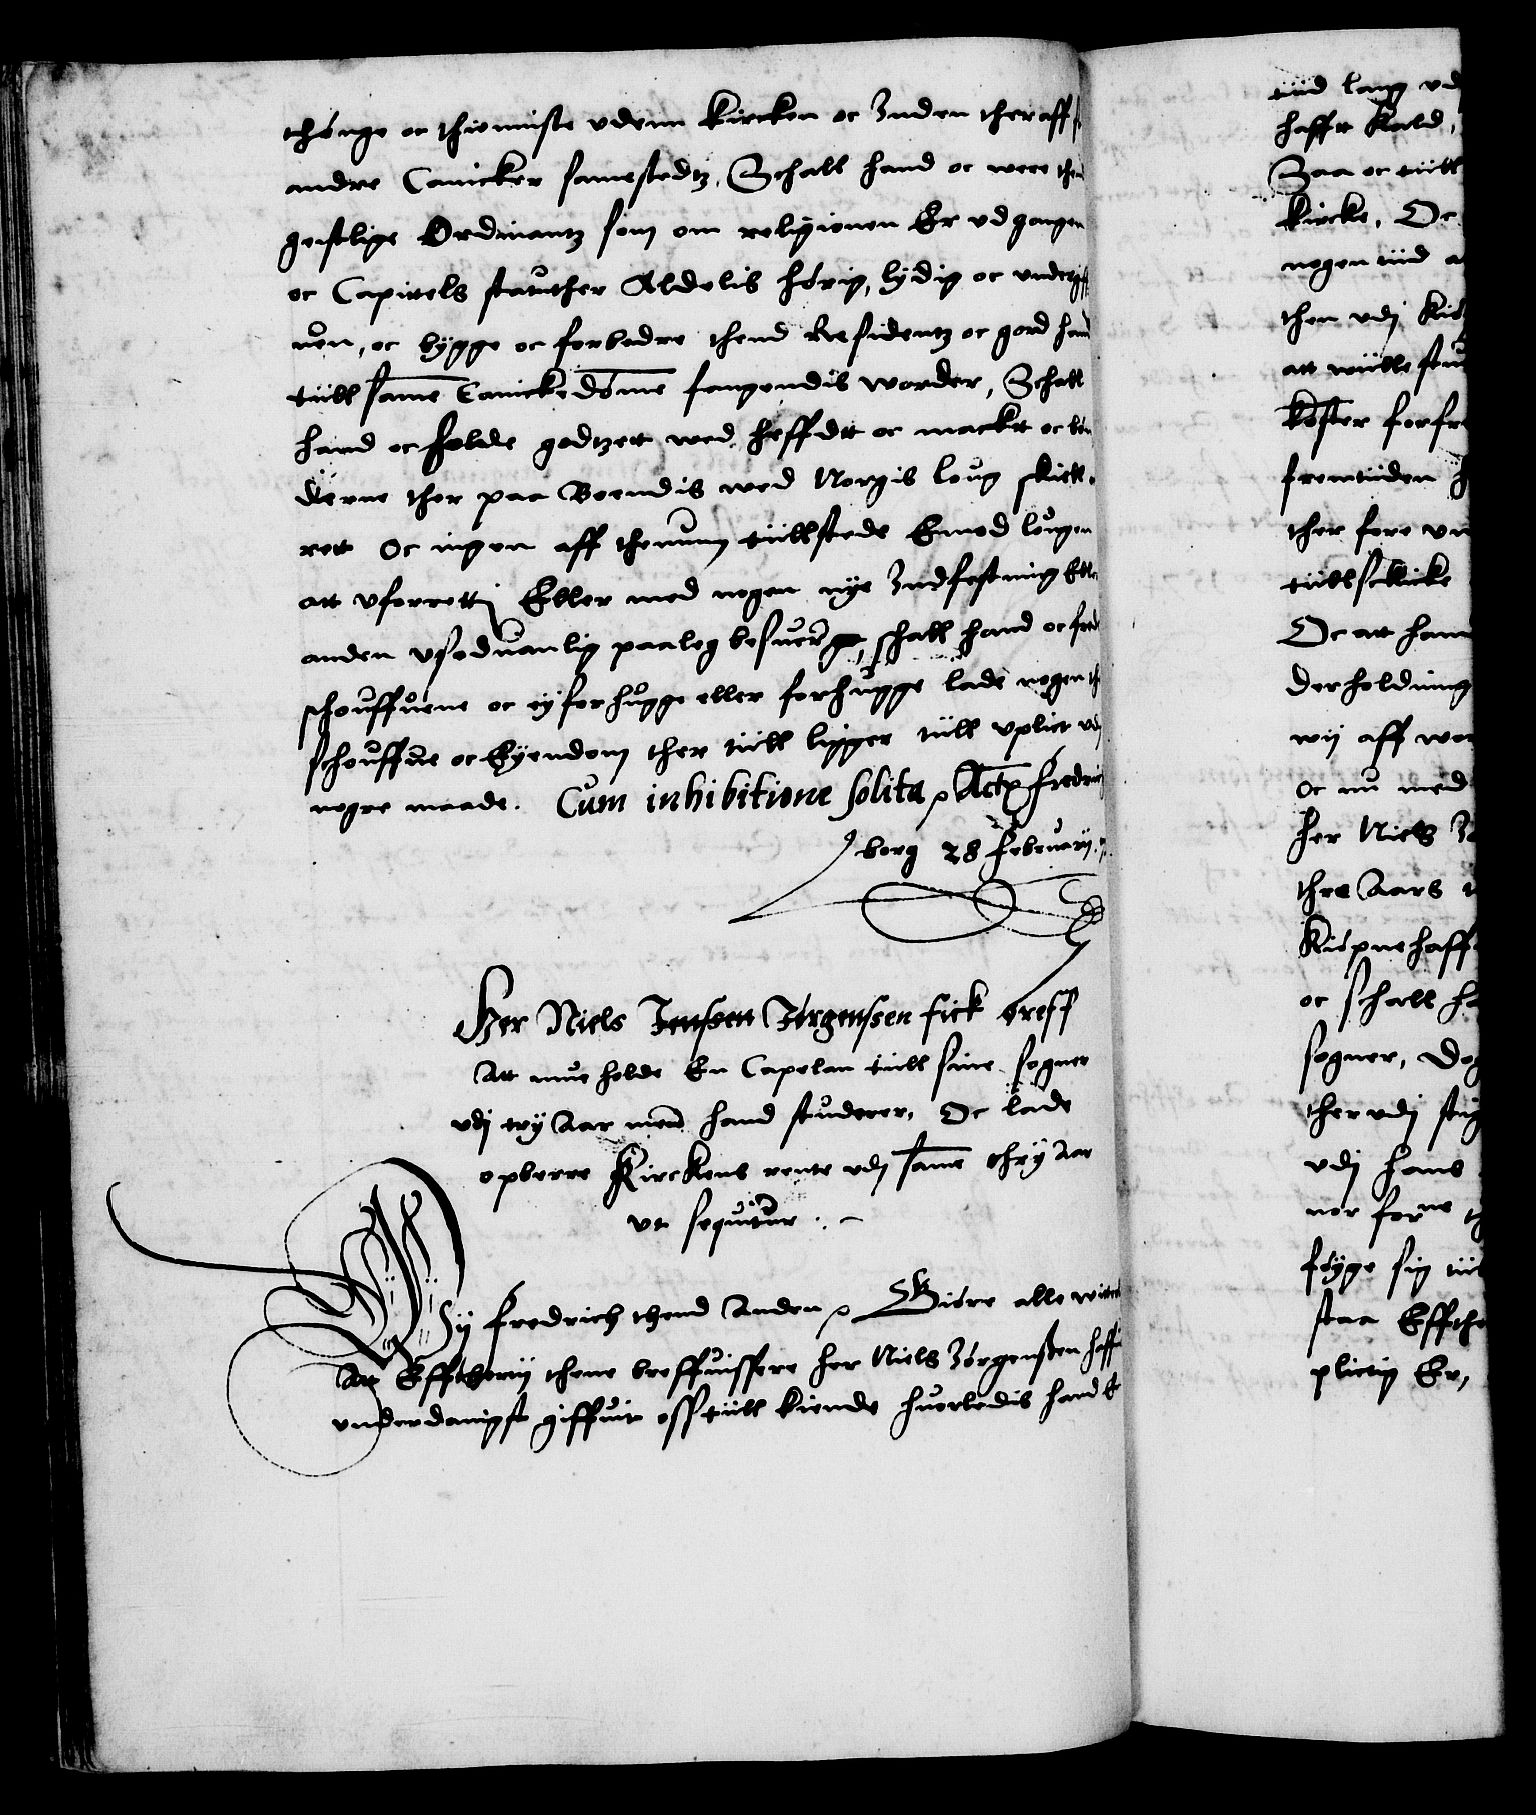 thönge oc thienniste vdenn Kircken oc Inden theraff
andre Canicker samestedtz, Schall hand oc were then
geistlige Ordinantz som om religionen Er vdgangen
oc Capittels statuther Aldelis hörig, lydig oc vndergiff
uen, oc bygge oc forbedre thend Residentz oc gord hand
tiill samme Canickedömme fangendis worder, Schall
hand oc holde godtzett wed heffdtt oc mackt oc bön
derne ther paa Boendis wed Norgis loug skiell
rett Oc ingen aff thennum tiillstede Emod lougen
att vforrette Eller med nogen nye Indfestning Eller
anden vseduanlig paaleg besuerge, schall hand oc frede
schouffuene oc ey forhugge eller forhugge lade nogen th
schouffue oc Eyendom ther tiill ligger tiill vplict vdj
nogre maade. Cum inhibitione solita Actum Fredrich
borg 28 Februarij.
Her Niels Jenssen Jörgenssen fick breff
Att mue holde En Capelan tiill sine sogner
vdj try Aar menn hand studerer, Oc lade
opberre Kirckens rente vdj samme thry Aar
vt sequitur.
Wij Fredrich thend Anden Giöre alle witterligt
Att Effterthij thenne breffuissere her Niels Jörgenssen haffuer
vnderdanigst giffuit oss tiill kiende huorledis hand
tiid lang vd
hafft Kald,
Saa oc tiill
Kircke, Oc
nogen tiid
then vdj
att wiille
Köster
fremtiiden
ther fore
tiillskicke
Oc att hann
derholdning
wij aff
oc nu med
her Niels
thre Aars
Kiöpnehaff
oc schall
sogner, Dog
ther vdj
vdj hans
nor forne
föye sig
staa Effther
plictig Er,